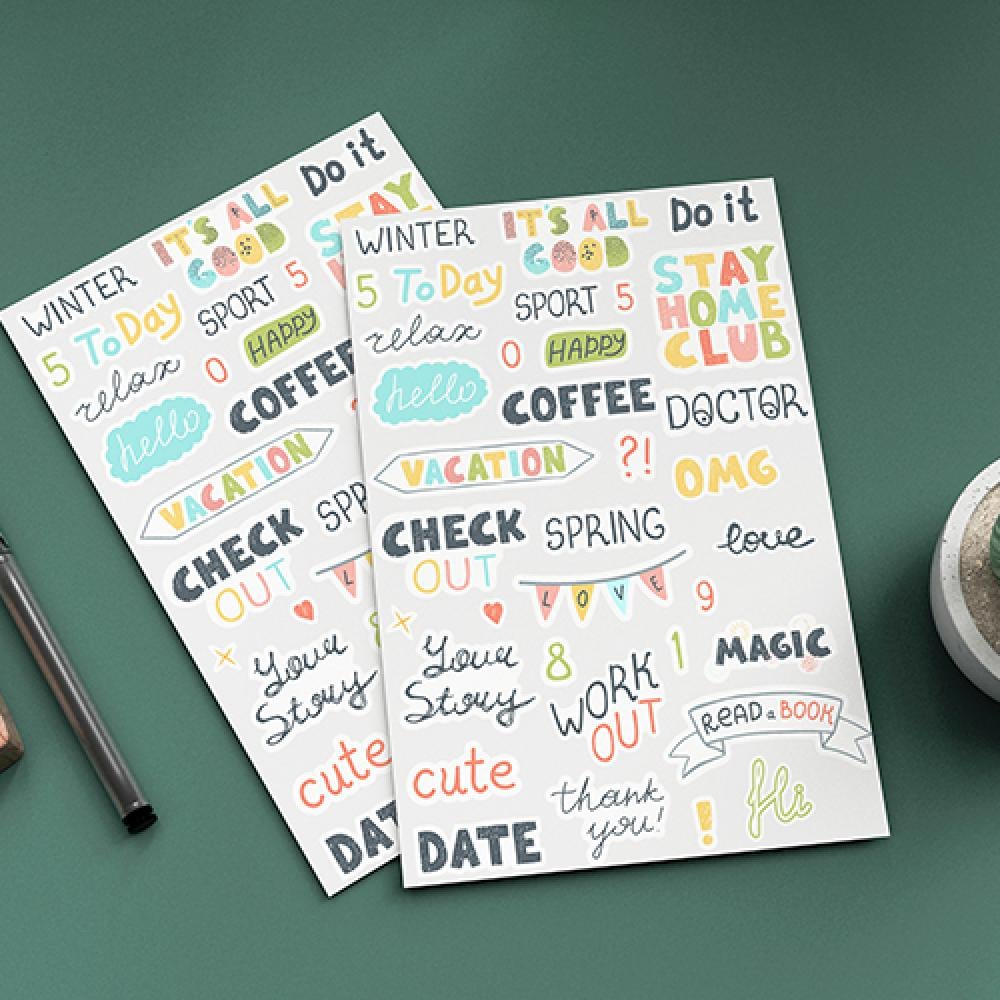 Do it
IT'S ALL
GOOD
STAY
WINTER
5
ToDay
SPORT
5
relax
0
HAPPY
hello
COFFEE
VACATION
CHECK
OUT
SPR
L
Your
Story
8
cute
DAT
WINTER
IT'S ALL
GOOD
Do it
5 ToDay
SPORT 5
STAY
HOME
CLUB
relax
0
HAPPY
hello
COFFEE
DOCTOR
VACATION
?!
OMG
CHECK
OUT
SPRING
love
LOVE
9
Your
Story
8
1
MAGIC
WORK
OUT
READ a BOOK
cute
thank
you!
!
Hi
DATE